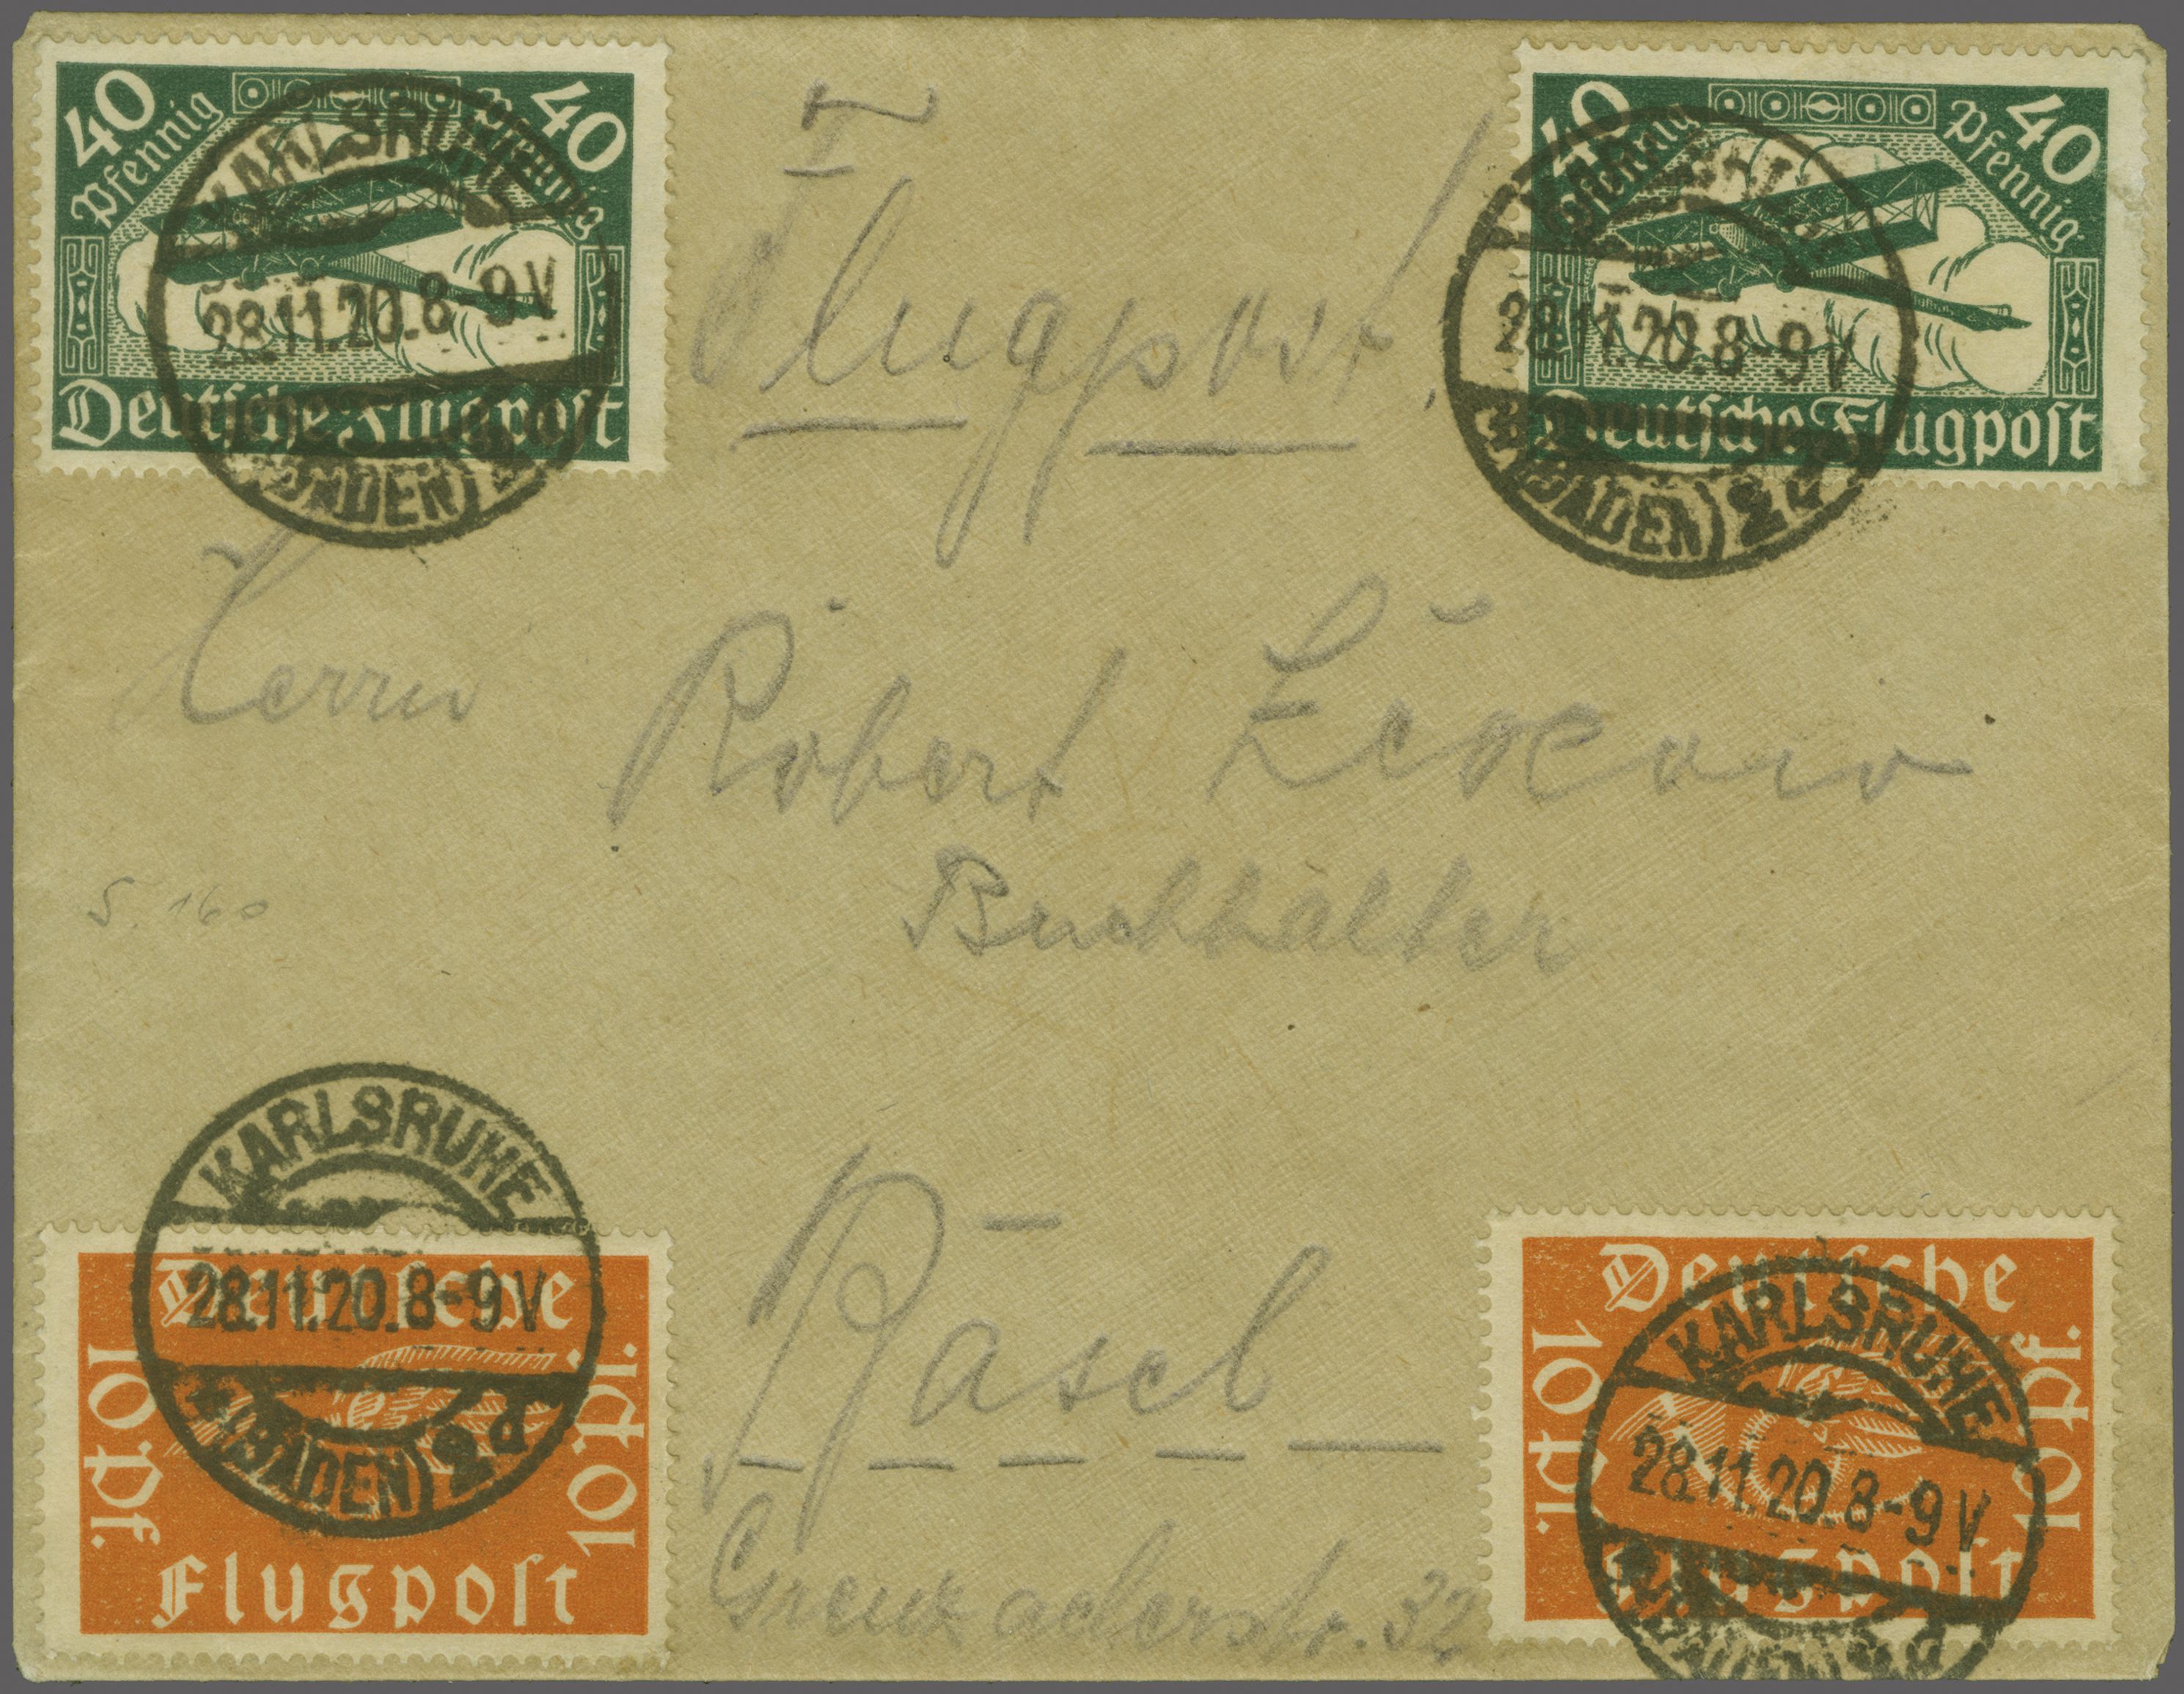 40 Pfennig 40 Pfennig
Deutsche Flugpost
KARLSRUHE
28.11.20.8-9V
(BADEN)
40 Pfennig 40 Pfennig
Deutsche Flugpost
28.11.20.8-9V
(BADEN) 2d
Flugpost!
Herrn
Robert
Buchhalter
S. 160
Basel
Grenzacherstr. 32
KARLSRUHE
28.11.20.8-9V
*(BADEN) 2d
Deutsche
10 Pf. 10 Pf.
Flugpost
Deutsche
10 Pf. 10 Pf.
Flugpost
KARLSRUHE
28.11.20.8-9V